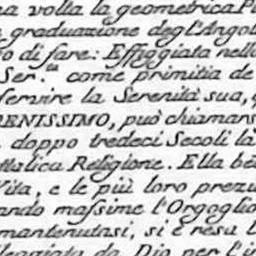 na volta la geometrica P
graduazione degl'Angol
o di fare: Effiggiata nell
Ser.ma come primitia de
servire la Serenità sua,
RENISSIMO, può chiamars
doppo tredeci Secoli la
ttolica Religione. Ella bē
Vita, e le più loro prezi
ando maſsime l'Orgoglio
mantenutasi, si è resa l
leggiata da Dio per l'i